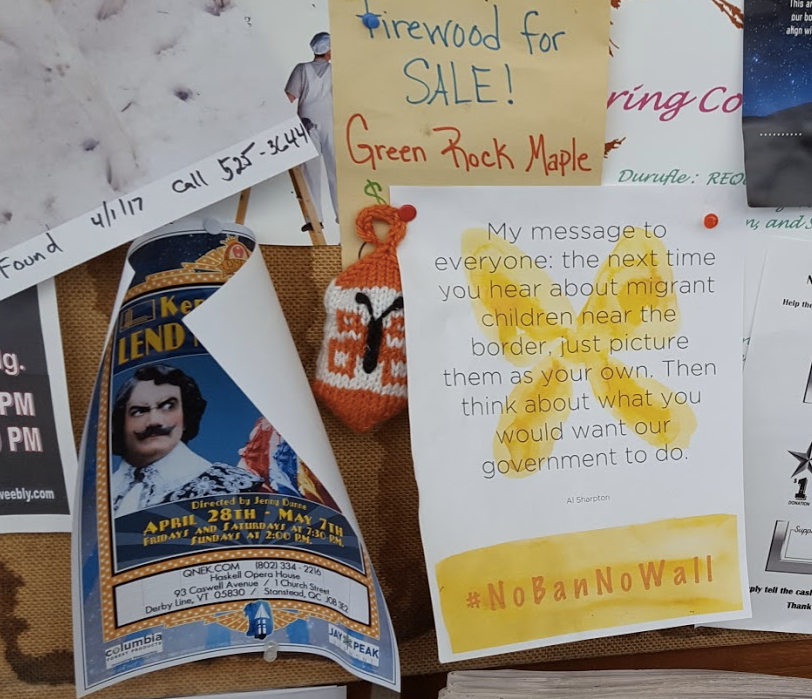 Firewood for
SALE!
Green Rock Maple
$
Found 4/1/17 Call 525-3644
ring Co
Durufle: REQ
n, and S
This a
our bo
align wi
lg.
PM
PM
weebly.com
Ker
LEND
Directed by Jenny Dunne
APRIL 28TH - MAY 7TH
FRIDAYS AND SATURDAYS AT 7:30 PM.
SUNDAYS AT 2:00 P.M.
QNEK.COM (802) 334-2216
Haskell Opera House
93 Caswell Avenue / 1 Church Street
Derby Line, VT 05830 / Stanstead, QC J0B 3E2
columbia
FOREST PRODUCTS
JAY PEAK
My message to
everyone: the next time
you hear about migrant
children near the
border, just picture
them as your own. Then
think about what you
would want our
government to do.
Al Sharpton
#NoBanNoWall
Help the
$1
DONATION
Supp
ply tell the cash
Thank